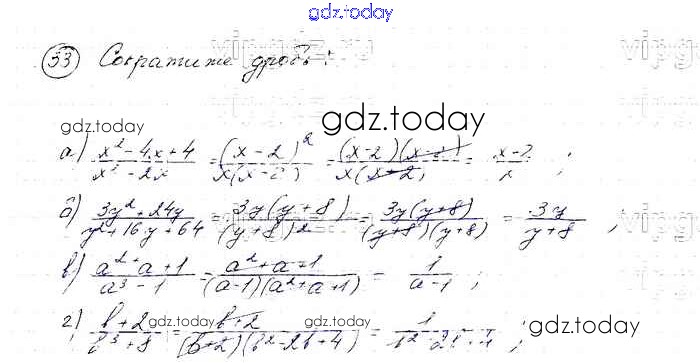 gdz.today
33 Сократите дробь:
gdz.today
gdz.today
а) (x² - 4x + 4)/(x² - 2x) = (x - 2)²/(x(x - 2)) = (x - 2)(x - 2)/(x(x - 2)) = (x - 2)/x ;
б) (3y² + 24y)/(y² + 16y + 64) = 3y(y + 8)/(y + 8)² = 3y(y + 8)/((y + 8)(y + 8)) = 3y/(y + 8) ;
в) (a² + a + 1)/(a³ - 1) = (a² + a + 1)/((a - 1)(a² + a + 1)) = 1/(a - 1) ;
г) (b + 2)/(b³ + 8) = (b + 2)/((b + 2)(b² - 2b + 4)) = 1/(b² - 2b + 4) ;
gdz.today gdz.today